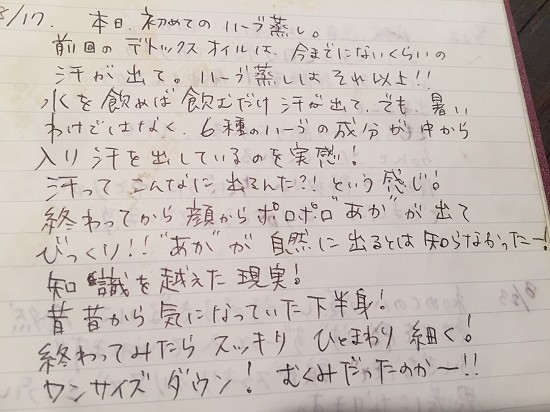 8/17. 本日、初めてのハーブ蒸し。
前回のデトックスオイルは、今までにないくらいの
汗が出て。ハーブ蒸しはそれ以上!!
水を飲めば飲むだけ汗が出て、でも、暑い
わけではなく、6種のハーブの成分が中から
入り汗を出しているのを実感!
汗ってこんなに出るんだ?!という感じ!
終わってから顔からポロポロ"あか"が出て
びっくり!!"あか"が自然に出るとは知らなかったー!
知識を越えた現実!
昔昔から気になっていた下半身!
終わってみたらスッキリひとまわり細く!
ワンサイズダウン!むくみだったのかー!!